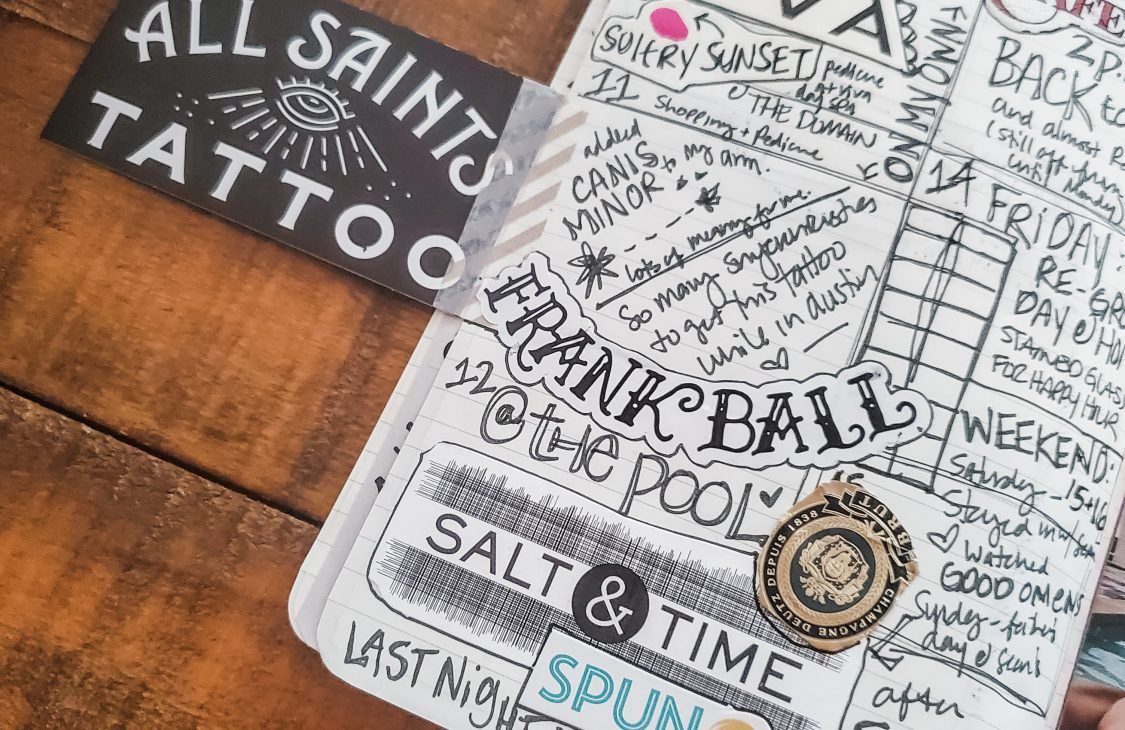 ALL SAINTS
TATTOO
VA
SUltRY SUNSET
pedicure
at viva
day spa
11 Shopping + Pedicure
@ THE DOMAIN
added
CANIS to my arm.
MINOR
lots of meaning for me.
So many synchronicities
to get this tattoo
while in Austin
FRANK BALL
12 @ tHe POOL
SALT & TIME
LAST NigHT
SPUN
CHAMPAGNE DEUTZ DEPUIS 1838
BRUT
CAFE
2P.
BACK to
and almost
(still off from
until Monday)
14 FRiDAY:
RE-GRO
DAY @ HO
STAINED GLASS
FOR HAPPY HOUR
WEEKEND:
Saturday - 15+16
Stayed in
watched
GOOD OMENS
Sunday - father's
day @ sean's
after